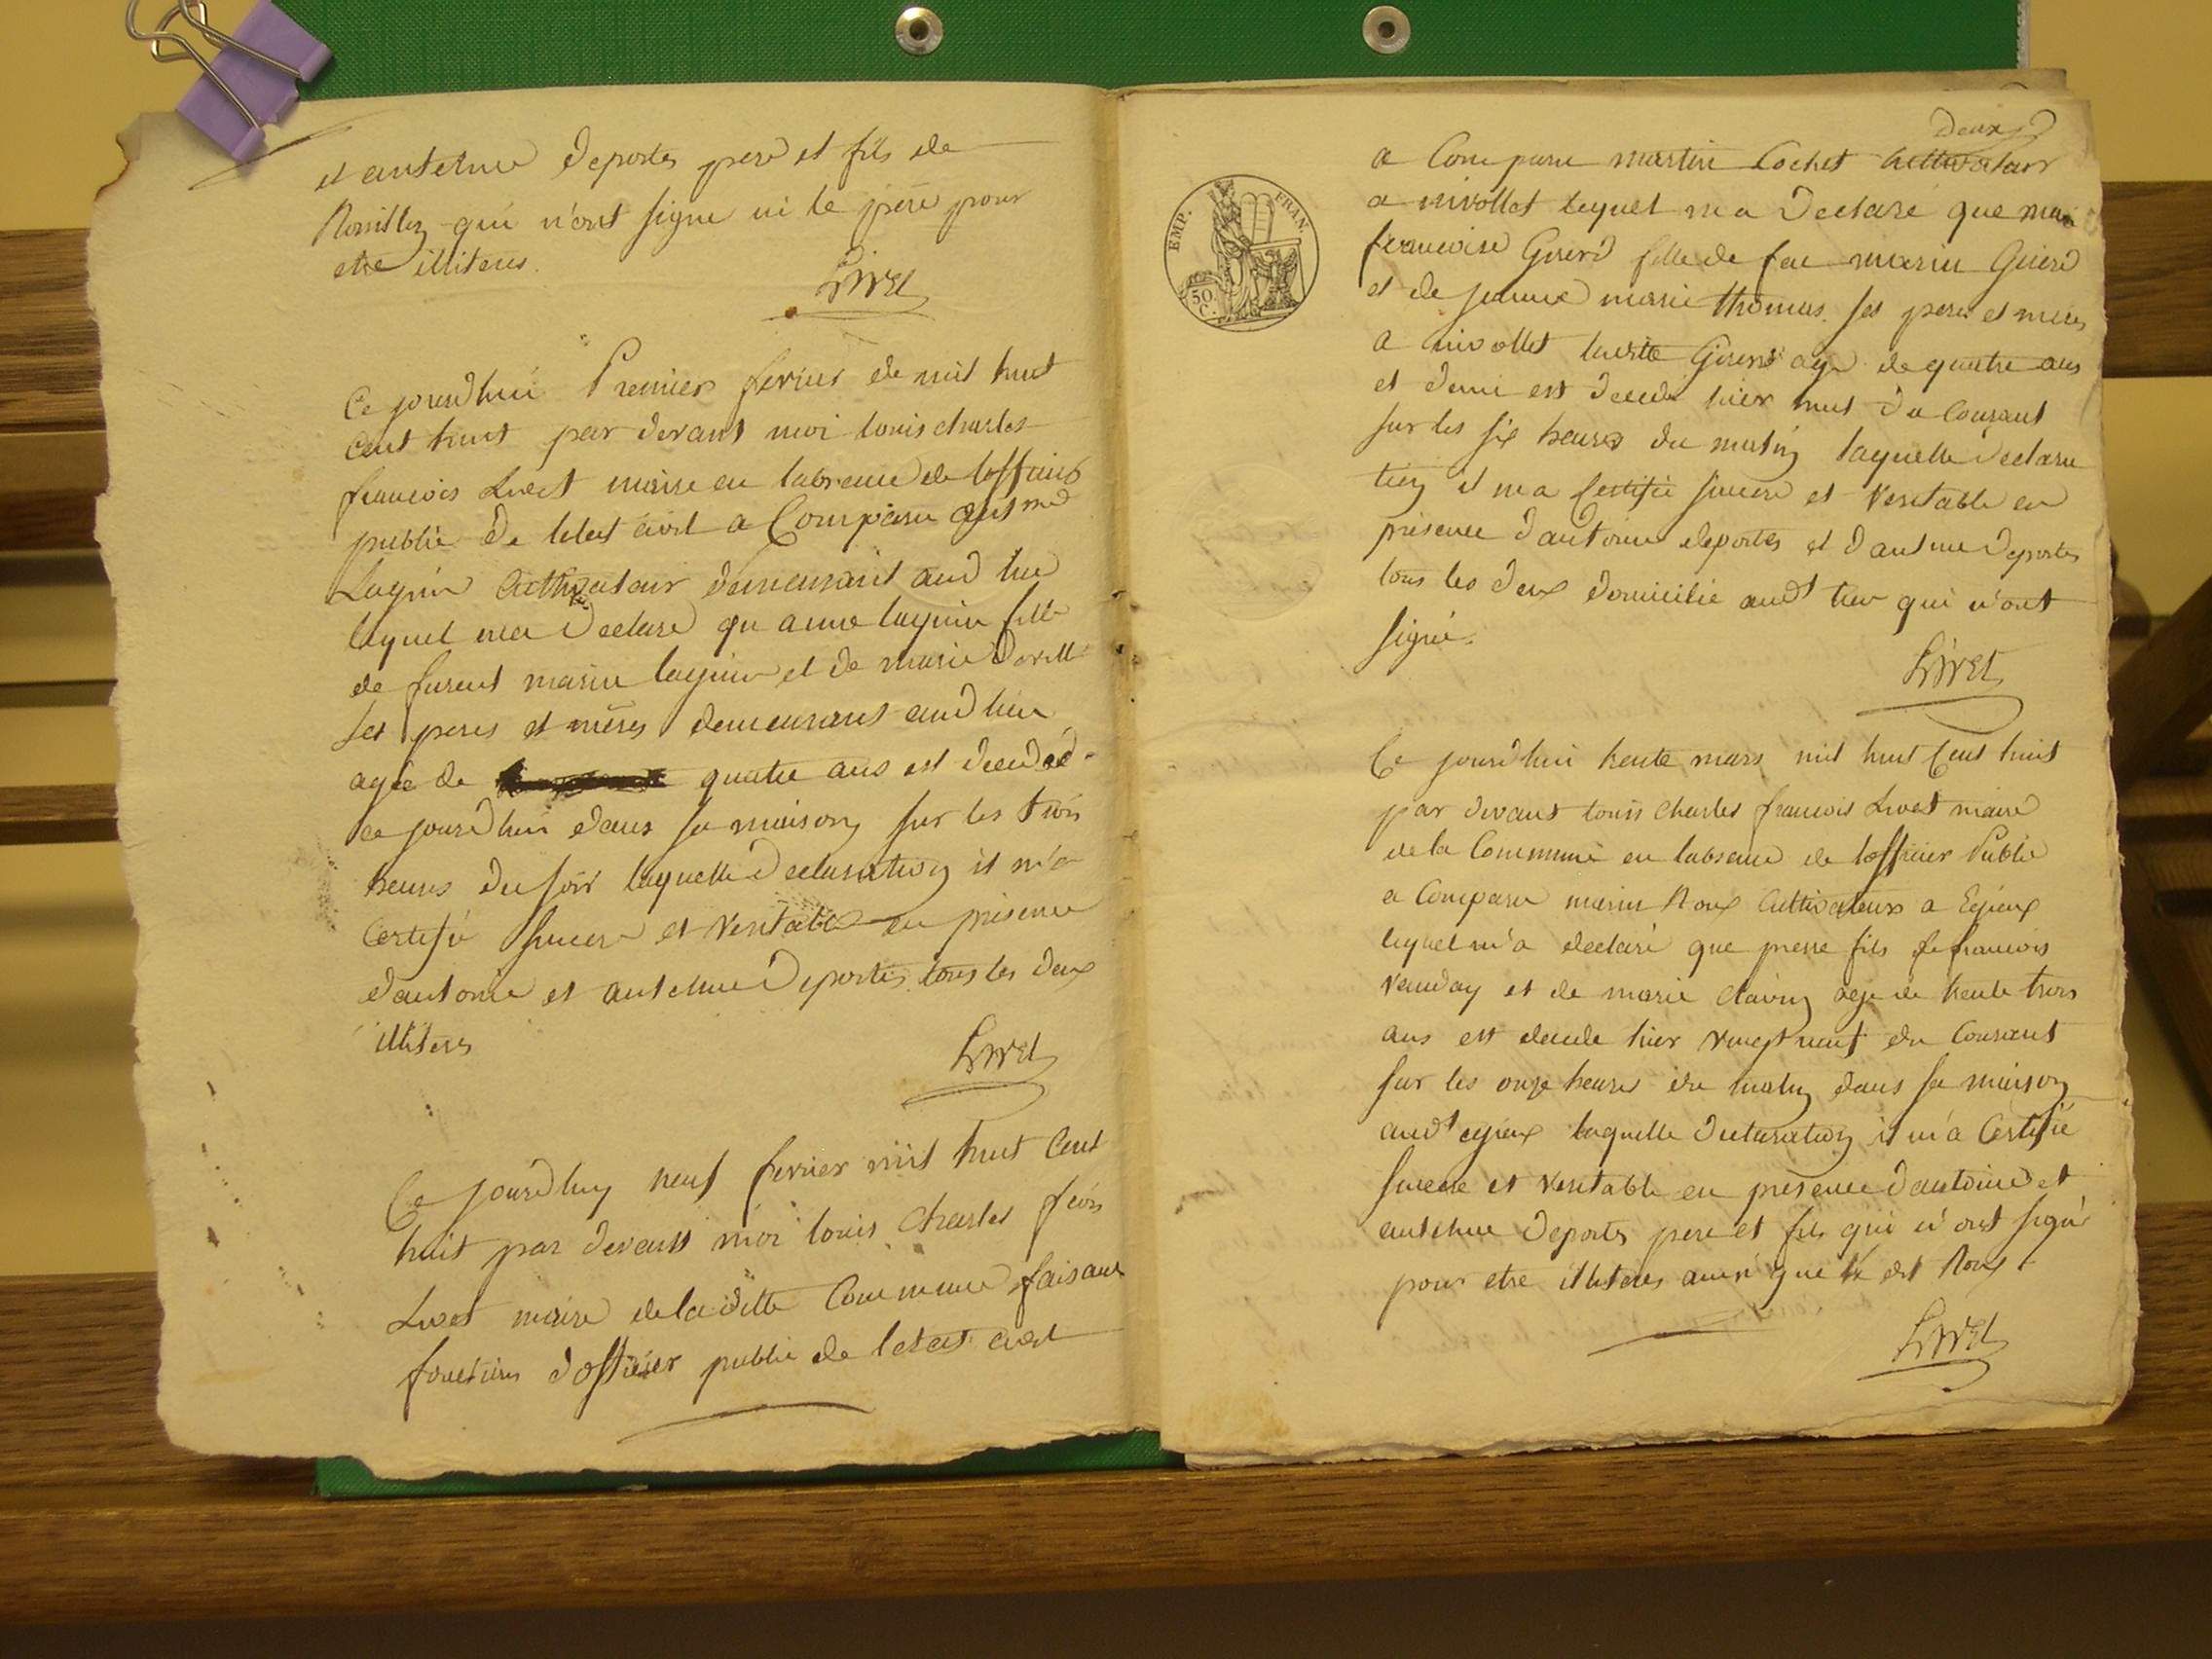 et antelme Deportes pere et fils de
Rouillez qui n'ont signe ni le père pour
etre illiteres.
Livet
Ce jourdhui Premier fevrier de mil huit
cent huit par devant moi louis charles
francois Livet maire en labsence de loffficier
public De letat civil a Comparu
Laquin Cultivateur demeurant aud lieu
lequel ma Declaré qu anne laquin fille
de furent marin laquin et de marie
ses peres et mères demeurans aud lieu
agée de quatre ans est decedéé
ce jourdhui dans sa maison sur les trois
heures du soir laquelle Declaration il m'a
Certifié sincere et veritable en présence
dantoine et antelme Deportes tous les deux
illiteres
Livet
Ce jourdhuy neuf fevrier mil huit Cent
huit par devant moi louis charles fcois
Livet maire de la ditte Commune faisant
fonctions dofficier public de letat civil
deux
EMP. FRAN.
50 C.
a Comparu martin Cochet Cultivateur
a nivollet lequel m a Declaré que
francoise Guerd fille de feu marin Guerd
et de jeanne marie thomas ses peres et meres
a nivollet laditte Guerd age de quatre ans
et demi est decede hier huit du Courant
sur les six heures du matin laquelle declara
tion il m a Certifié sincere et veritable en
présence dantoine deportes et dantelme Deportes
tous les deux domicilie audt lieu qui n'ont
signé.
Livet
Ce jourdhui trente mars mil huit Cent huit
par devant louis charles francois Livet maire
de la Commune en labsence de lofficier Public
a Comparu marin Roux Cultivateurs a Epieux
lequel m'a declaré que pierre fils de francois
vauday et de marie age de trente trois
ans est decede hier vingt neuf du Courant
sur les onze heures du matin dans sa maison
audt epieux laquelle Declaration il m'a Certifié
sincere et veritable en présence dantoine et
antelme Deportes pere et fils qui n'ont signé
pour etre illiteres ainsi que le dt Roux
Livet